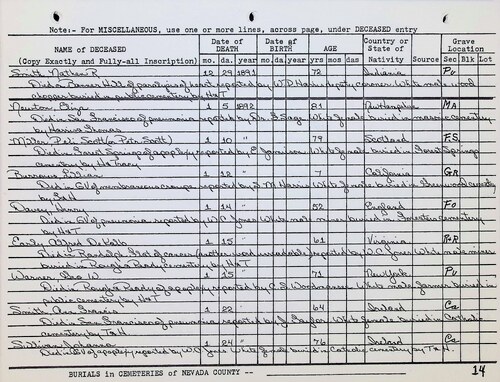 Note:- For MISCELLANEOUS, use one or more lines, across page, under DECEASED entry
NAME OF DECEASED
(Copy Exactly and Fully-all Inscription)
Date of DEATH
mo. da. year
Date of BIRTH
mo. da. year
AGE
yrs mos das
Country or State of Nativity
Source
Grave Location
Sec Blk Lot
Smith, Nathan R 12 29 1891 72 Indiana Pu
Died in Banner Hill of paralysis of heart reported by W D Harris deputy coroner White male wood
chopper buried in public cemetery by H&T
Newton, Eliza 1 5 1892 81 MA
Died in San Francisco of pneumonia reported by Dr Sage White female buried in masonic cemetery
by Harris Thomas
Miller, Scott (or Scott) 1 10 " 79 Scotland F.S.
Died in Forest Springs of apoplexy reported by E Jamison White female buried in Forest Springs
cemetery by
Burrows, Lillian 1 12 " 7 California GR
Died in GV of membraneous croup reported by M Harris White female buried in Greenwood cemetery
by
Davey, Henry 1 14 " 52 England Fo
Died in GV of pneumonia reported by W C Jones White male miner buried in Forester cemetery
by H&T
Early, Alfred DeKalb 1 15 " 61 Virginia R&R
Died in Randolph Flat of cancer reported by W.C. Jones White male miner
buried in Rough & Ready cemetery by H&T
Warner, Geo W 1 15 " 71 New York Pu
Died in Rough & Ready of apoplexy reported by C S White male farmer buried in
public cemetery by H&T
Smith, Ann 1 22 " 64 Ireland Ca
Died in San Francisco of pneumonia reported by J Taylor White female buried in Catholic
cemetery by T&H
Sullivan, Johanna 1 24 " 76 Ireland Ca
Died in GV of apoplexy reported by W C Jones White female buried in Catholic cemetery by T&H.
BURIALS in CEMETERIES OF NEVADA COUNTY --
14